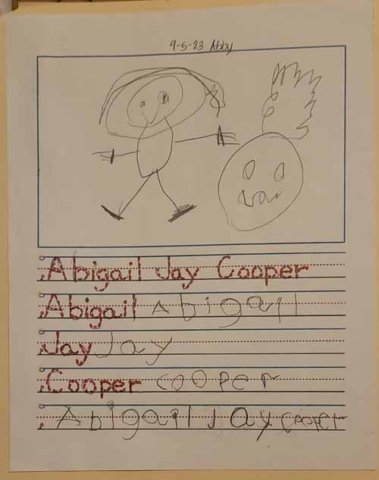 9-5-23 Abby
Abigail Jay Cooper
Abigail Abigail
Jay Jay
Cooper cooper
Abigail Jay cooper